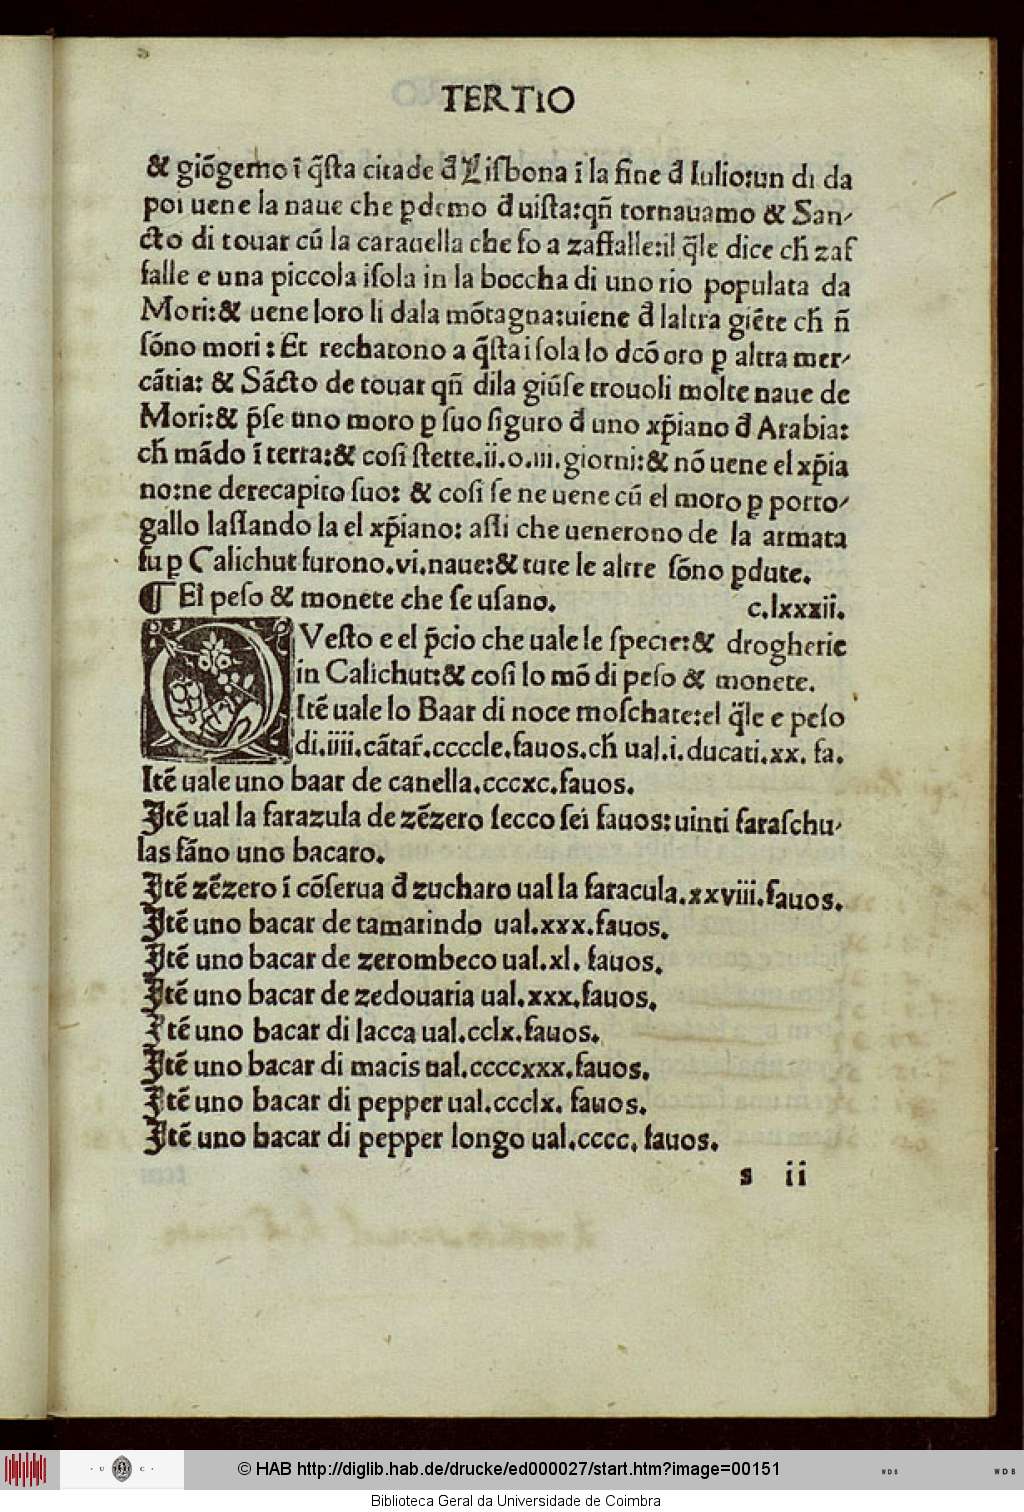 TERTIO
& giõgemo ĩ q̃sta citade đ Lisbona ĩ la fine đ Iulio:un di da
poi uene la naue che ꝑdemo đ uista:qñ tornauamo & San-
cto di touar cũ la carauella che fo a zaffalle:il q̃le dice cħ zaf
falle e una piccola isola in la boccha di uno rio populata da
Mori:& uene loro li dala mõtagna:uiene đ laltra giẽte cħ ñ
sõno mori: Et rechatono a q̃sta isola lo dcõ oro ꝑ altra mer-
cãtia: & Sãcto de touar qñ dila giũse trouoli molte naue de
Mori:& p̃se uno moro ꝑ suo siguro đ uno xp̃iano đ Arabia:
cħ mãdo ĩ terra:& cosi stette.ii.o.iii.giorni:& nõ uene el xp̃ia
no:ne derecapito suo: & cosi se ne uene cũ el moro ꝑ porto-
gallo lassando la el xp̃iano: assi che uenerono de la armata
fu ꝑ Calichut furono.vi.naue:& tute le altre sõno ꝑdute.
¶ El peso & monete che se usano. c.lxxxii.
QVesto e el p̃cio che uale le specie:& drogherie
in Calichut:& cosi lo mõ di peso & monete.
Itẽ uale lo Baar di noce moschate:el q̃le e peso
di.iiii.cãtar̃.ccccle.fauos.cħ ual.i.ducati.xx. fa.
Itẽ uale uno baar de canella.cccxc.fauos.
Itẽ ual la farazula de zẽzero secco sei fauos:uinti faraschu-
las fãno uno bacaro.
Itẽ zẽzero ĩ cõserua đ zucharo ual la faracula.xxviii.fauos.
Itẽ uno bacar de tamarindo ual.xxx.fauos.
Itẽ uno bacar de zerombeco ual.xl. fauos.
Itẽ uno bacar de zedouaria ual.xxx.fauos.
Itẽ uno bacar di lacca ual.cclx.fauos.
Itẽ uno bacar di macis ual.ccccxxx.fauos.
Itẽ uno bacar di pepper ual.ccclx. fauos.
Itẽ uno bacar di pepper longo ual.cccc. fauos.
s ii
© HAB http://diglib.hab.de/drucke/ed000027/start.htm?image=00151
Biblioteca Geral da Universidade de Coimbra